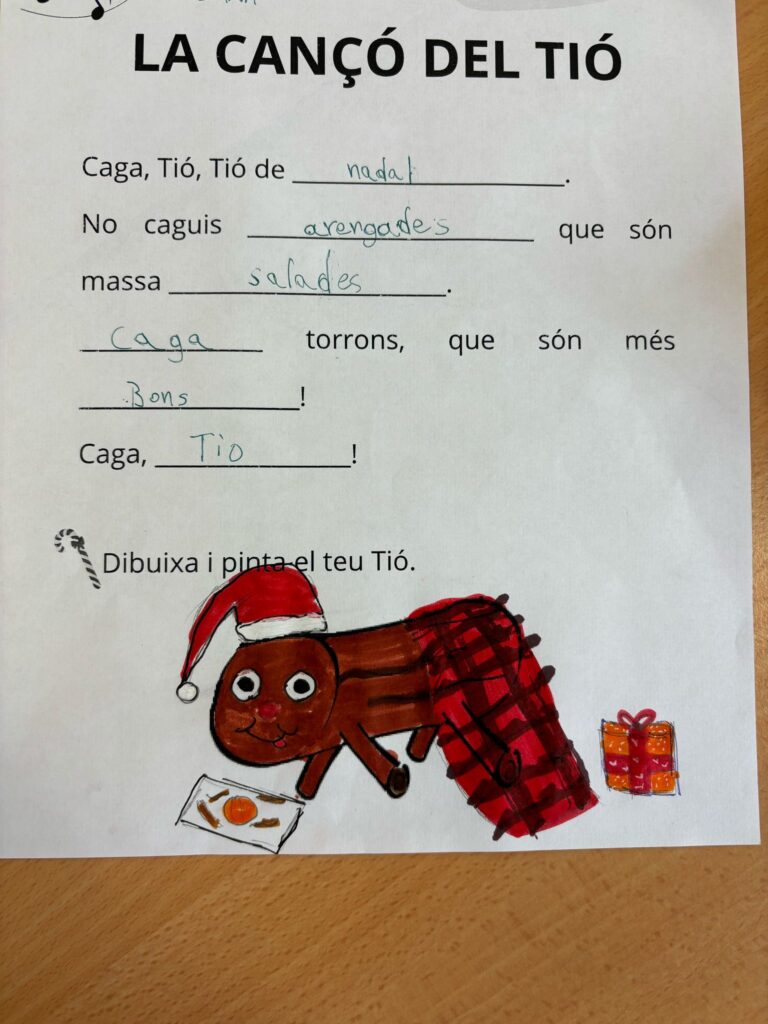 LA CANÇÓ DEL TIÓ
Caga, Tió, Tió de nadal.
No caguis arengades que són
massa salades.
Caga torrons, que són més
Bons!
Caga, Tio!
Dibuixa i pinta el teu Tió.